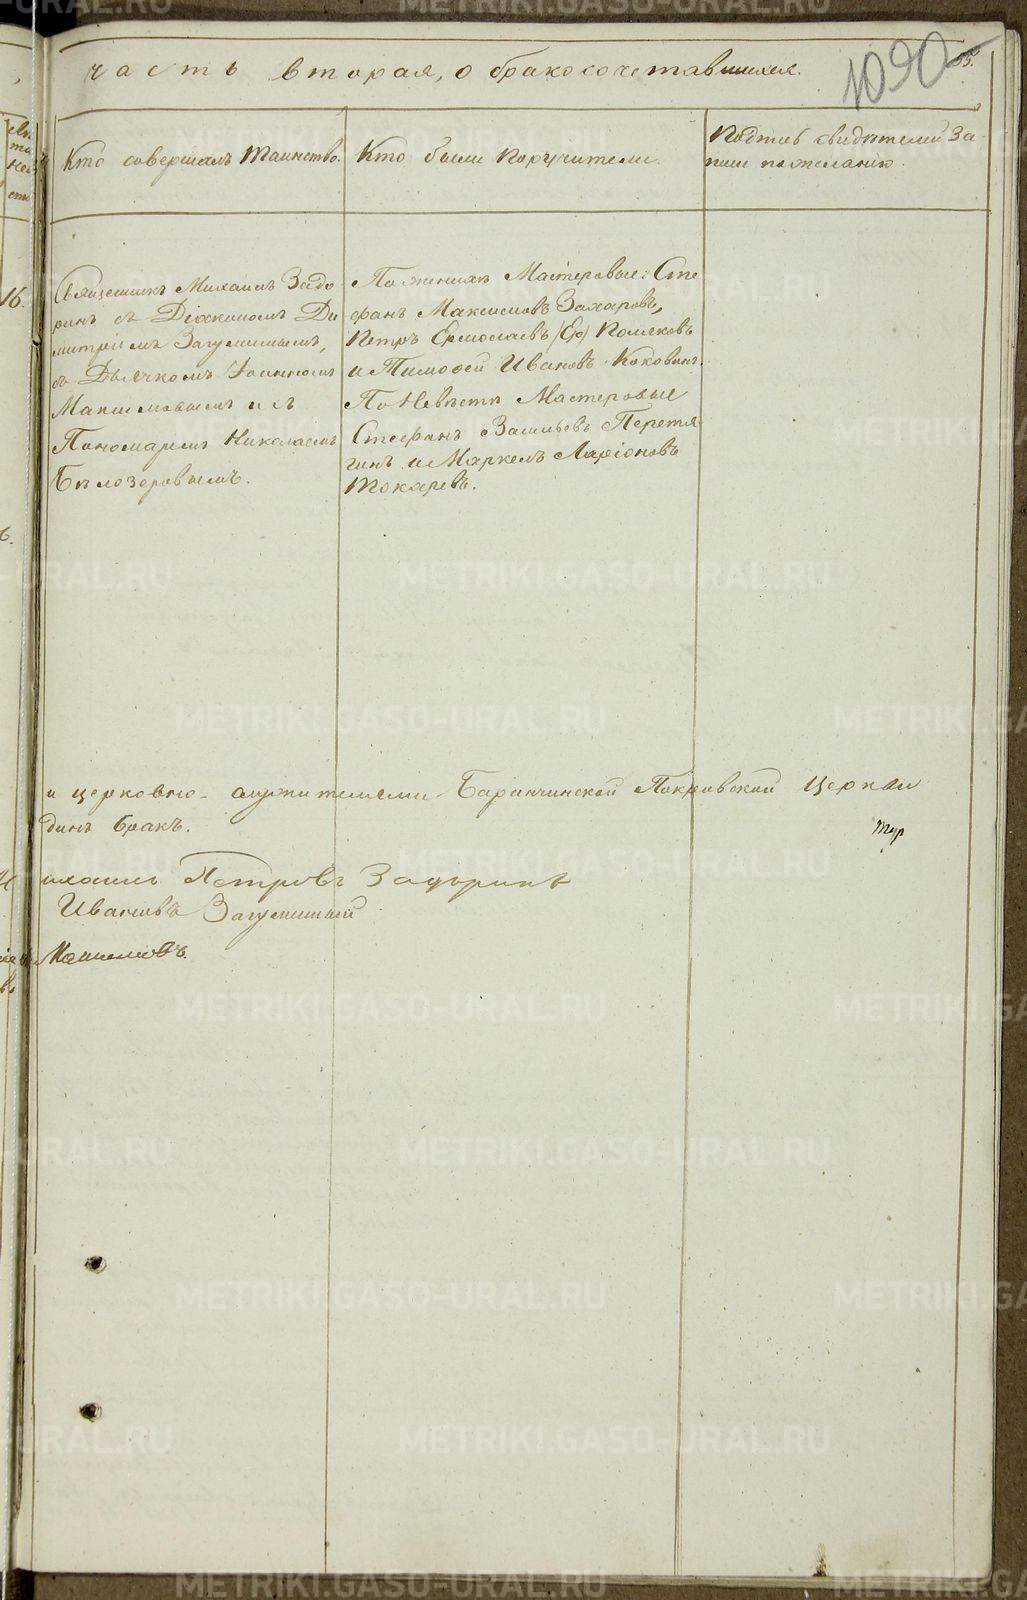 часть вторая, о бракосочетавшихся.
1090
Кто совершалъ Таинство.
Кто были поручители
Подпись свидѣтелей За-
писи по желанію.
16.
Священникъ Михаилъ Задо
ринъ съ Діакономъ Ди
митріемъ Загуминымъ,
съ Дьячкомъ Іоанномъ
Максимовымъ и съ
Пономаремъ Николаемъ
Бѣлозеровымъ.
По женихѣ Мастеровые: Сте
фанъ Максимовъ Захаровъ,
Петръ Ермолаевъ Поляковъ
и Тимофей Ивановъ Коковинъ.
По Невѣстѣ Мастеровые
Стефанъ Васильевъ Перетя-
гинъ и Маркелъ Ларіоновъ
Токаревъ.
и церковно-служителями Баранчинской Покровской Церкви
динъ бракъ.
ихаилъ Петровъ Задоринъ
Ивановъ Загуминый
Максимовъ.
METRIKI.GASO-URAL.RU